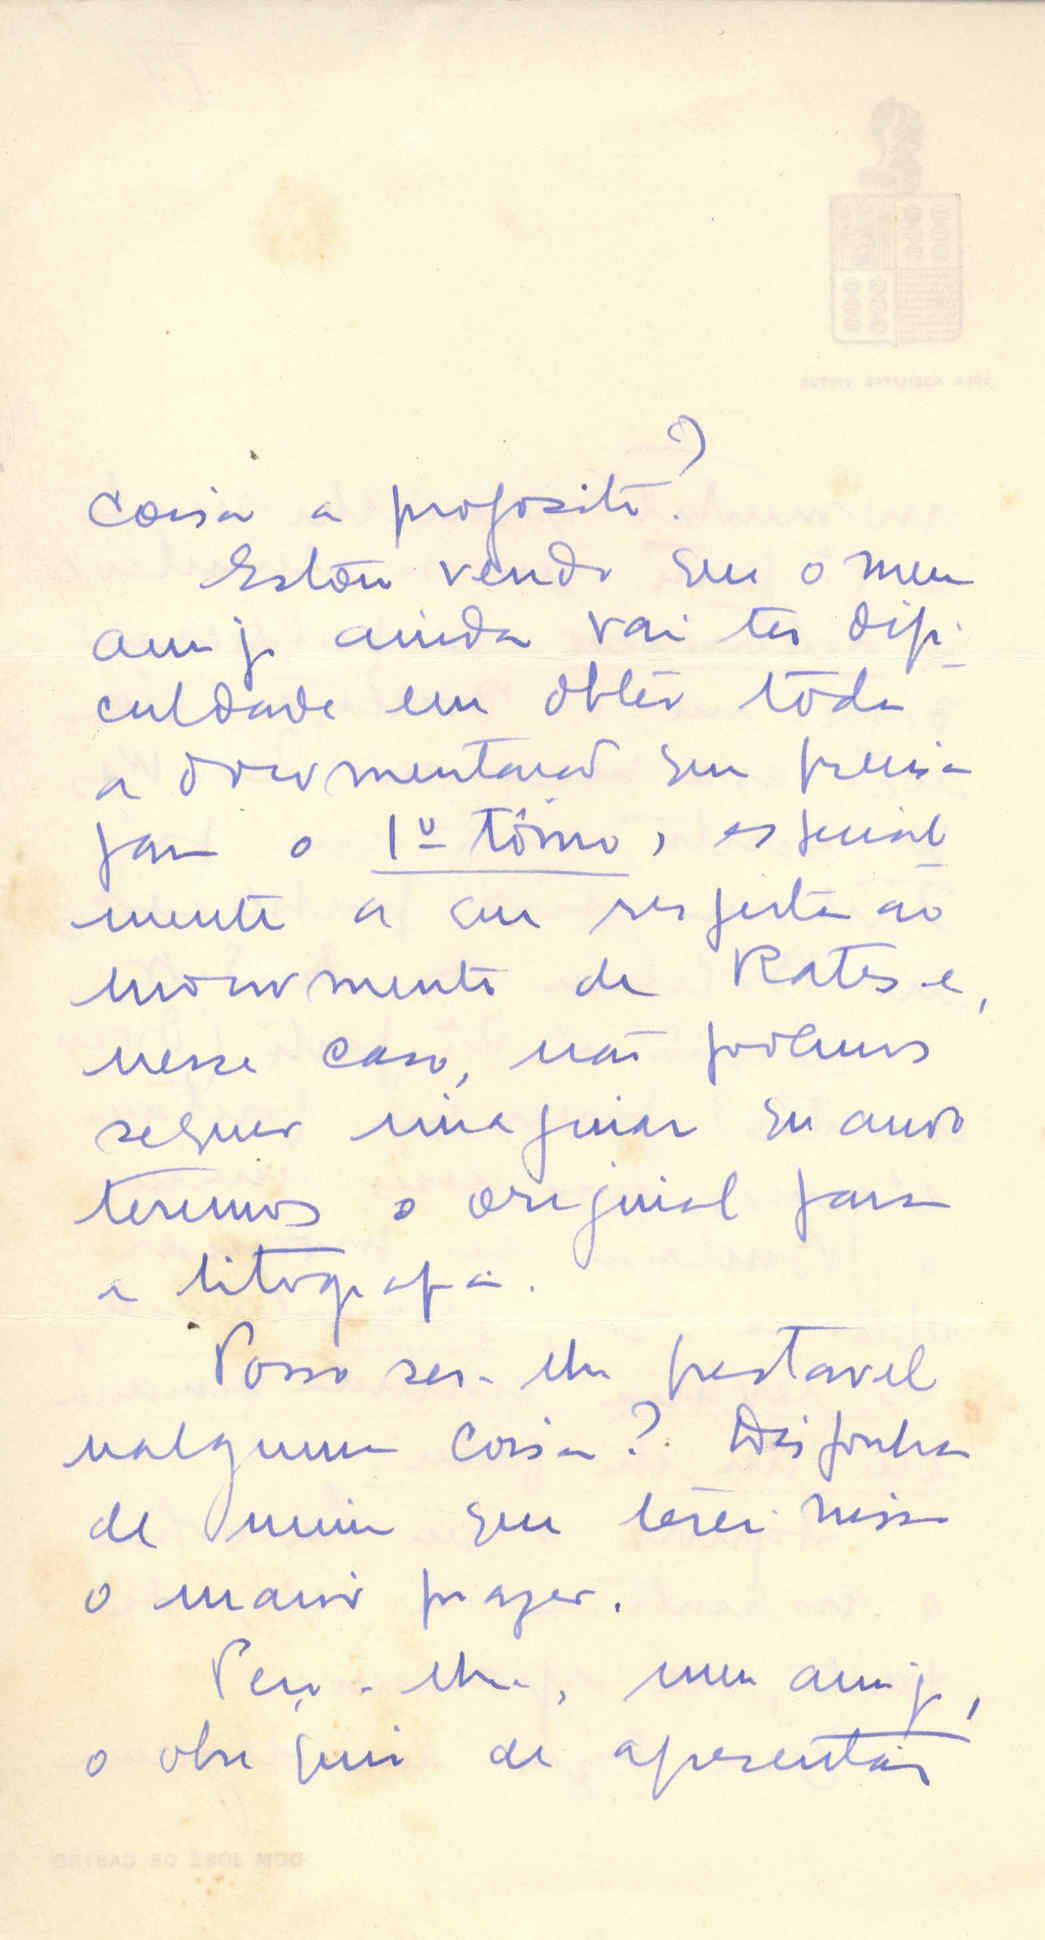 coisa a proposito?
Estou vendo que o meu
amigo ainda vai ter difi-
culdade em obter toda
a documentação que precisa
para o 1º tômo, especial
mente a que respeita ao
monumento de Rates e,
nesse caso, não podemos
sequer imaginar quando
teremos o original para
a litografia.
Posso ser-lhe prestavel
nalguma coisa? Disponha
de mim que terei nisso
o maior prazer.
Peço-lhe, meu amigo,
o obsequio de apresentar
DOM JOSÉ DE CASTRO